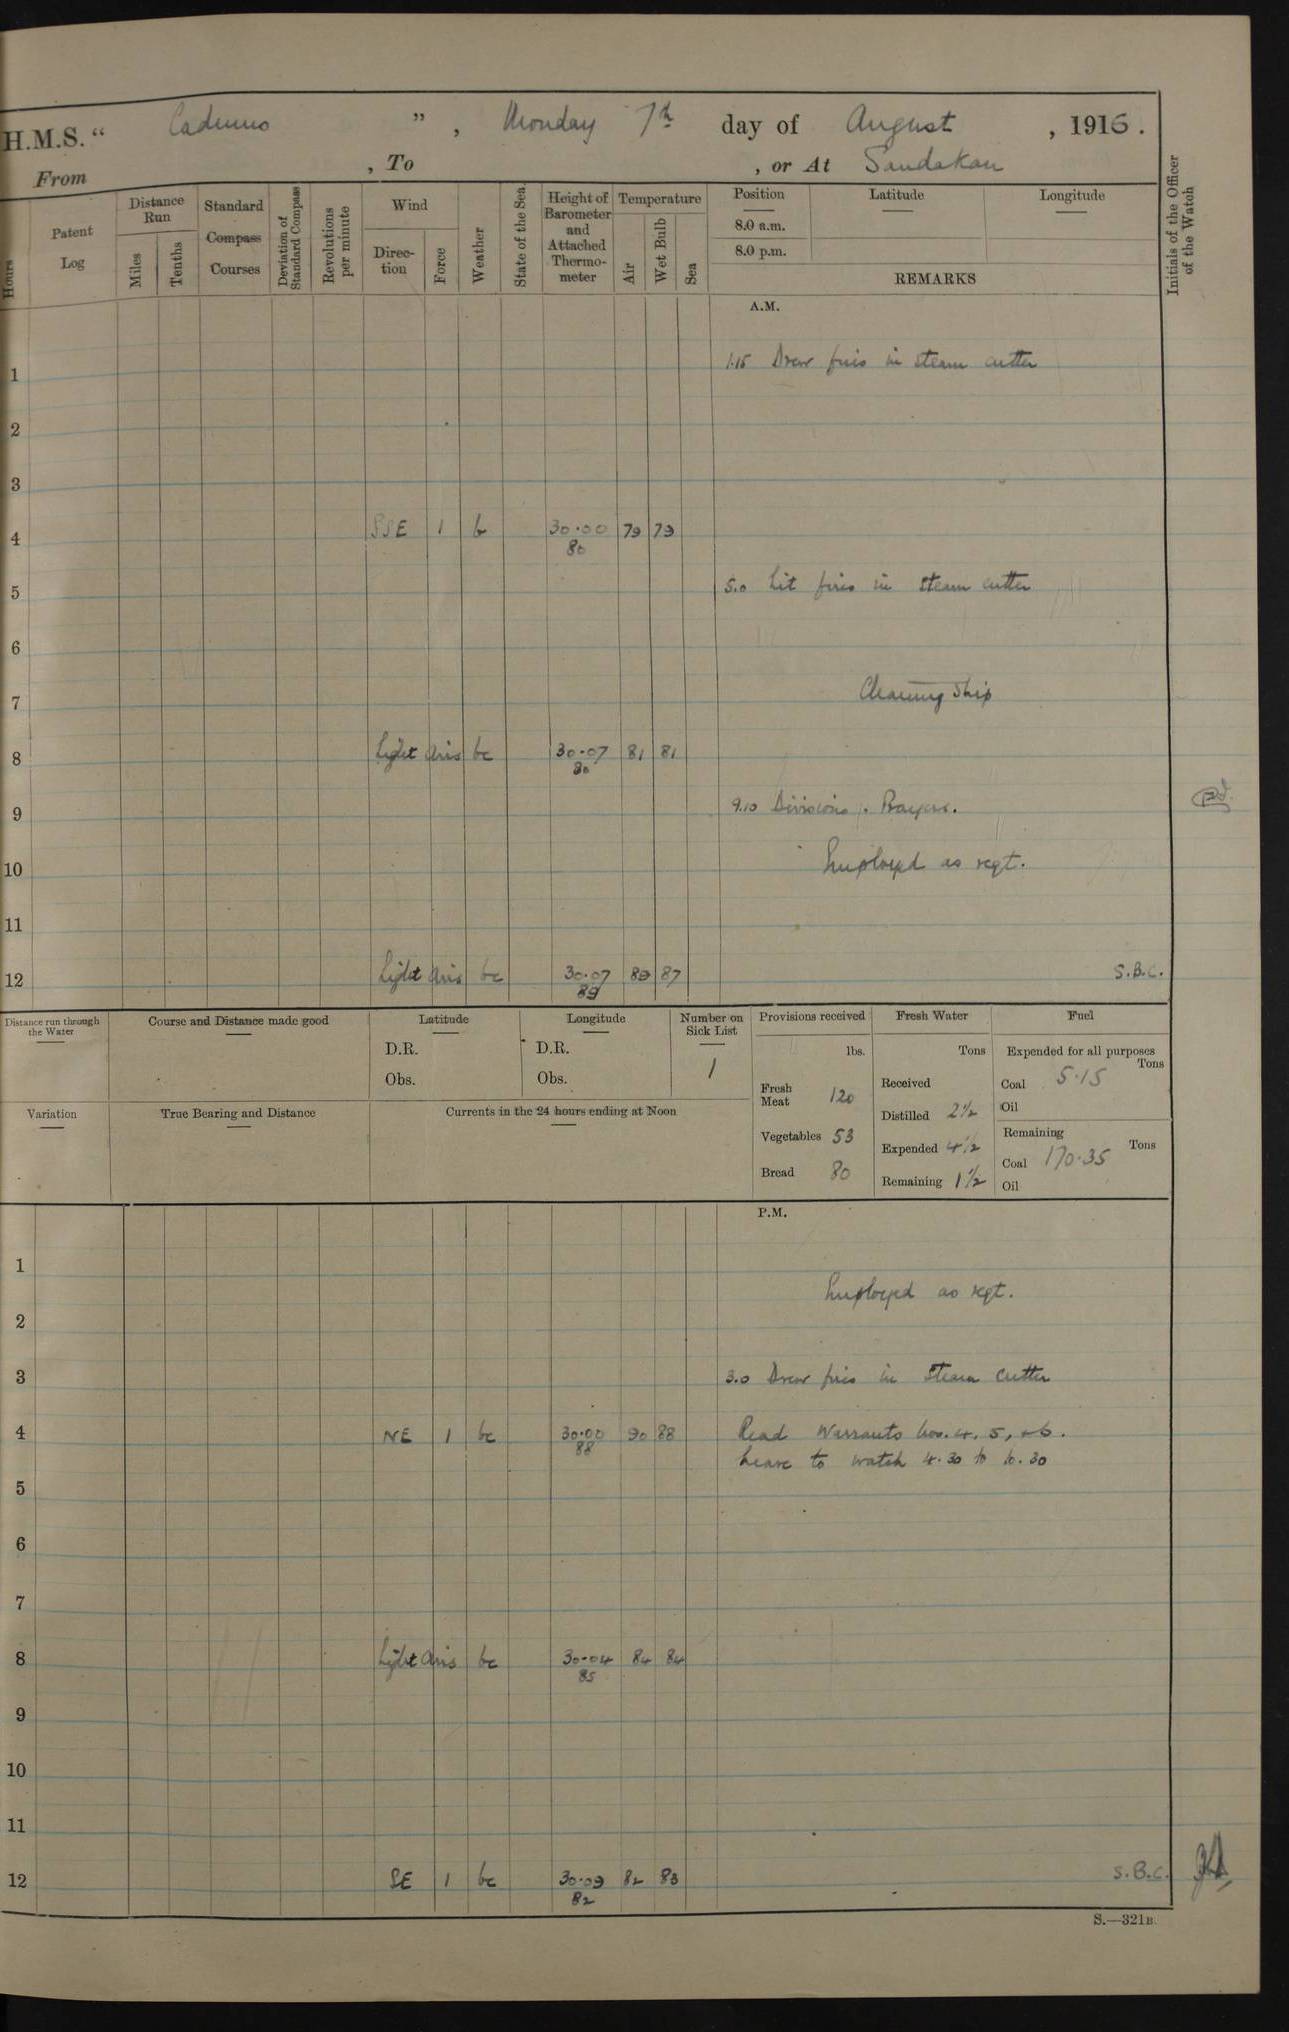 H.M.S. " Cadmus " , Monday 7th day of August , 1916.
From , To , or At Sandakan
Hours
Patent Log
Distance Run
Miles
Tenths
Standard Compass Courses
Deviation of Standard Compass
Revolutions per minute
Wind
Direction
Force
Weather
State of the Sea
Height of Barometer and Attached Thermometer
Temperature
Air
Wet Bulb
Sea
Position
8.0 a.m.
8.0 p.m.
Latitude
Longitude
REMARKS
Initials of the Officer of the Watch
A.M.
1 1.15 Drew fires in steam cutter
2
3
4 SSE 1 b 30.00 79 79
80
5 5.0 Lit fires in steam cutter
6
7 Cleaning Ship
8 Light airs bc 30.07 81 81
80
9 9.10 Divisions. Prayers.
10 Employed as reqt.
11
12 Light airs bc 30.07 89 87 S.B.C.
89
Distance run through the Water
Course and Distance made good
Latitude
D.R.
Obs.
Longitude
D.R.
Obs.
Number on Sick List
1
Variation
True Bearing and Distance
Currents in the 24 hours ending at Noon
Provisions received
lbs.
Fresh Meat 120
Vegetables 53
Bread 80
Fresh Water
Tons
Received
Distilled 2½
Expended 4½
Remaining 1½
Fuel
Expended for all purposes
Tons
Coal 5.15
Oil
Remaining
Tons
Coal 170.35
Oil
P.M.
1
Employed as reqt.
2
3 3.0 Drew fires in Steam Cutter
4 NE 1 bc 30.00 90 88 Read Warrants Nos. 4, 5, + 6.
88 Leave to watch 4.30 to 10.30
5
6
7
8 Light airs bc 30.04 84 84
85
9
10
11
12 SE 1 bc 30.09 82 83 S.B.C.
82
S.—321B.